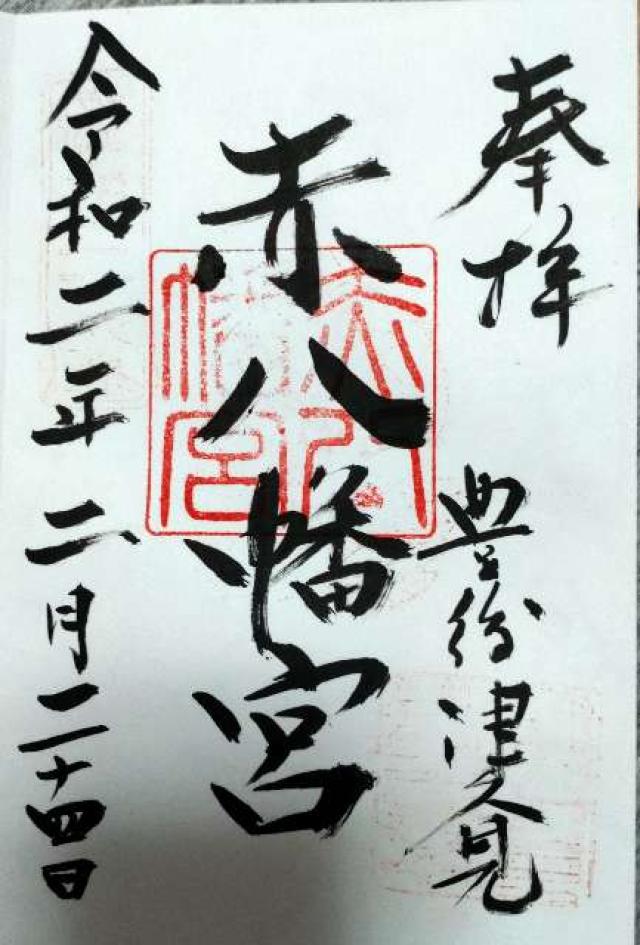 奉拝
豊後津久見
赤八幡宮
赤八幡宮
令和二年二月二十四日